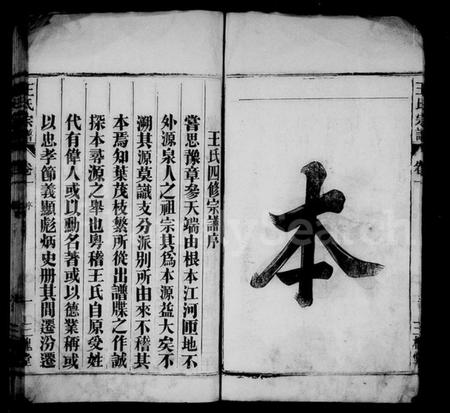 本
王氏宗譜
卷一
王氏四修宗譜序
嘗思豫章參天端由根本江河匝地不
外源泉人之祖宗其爲本源益大矣不
溯其源莫識支分派別所由來不稽其
本焉知葉茂枝繁所從出譜牒之作誠
探本尋源之舉也粵稽王氏自原受姓
代有偉人或以勳名著或以德業稱或
以忠孝節義顯彪炳史册其間遷汾遷
王氏宗譜
卷一
序
一
三槐堂